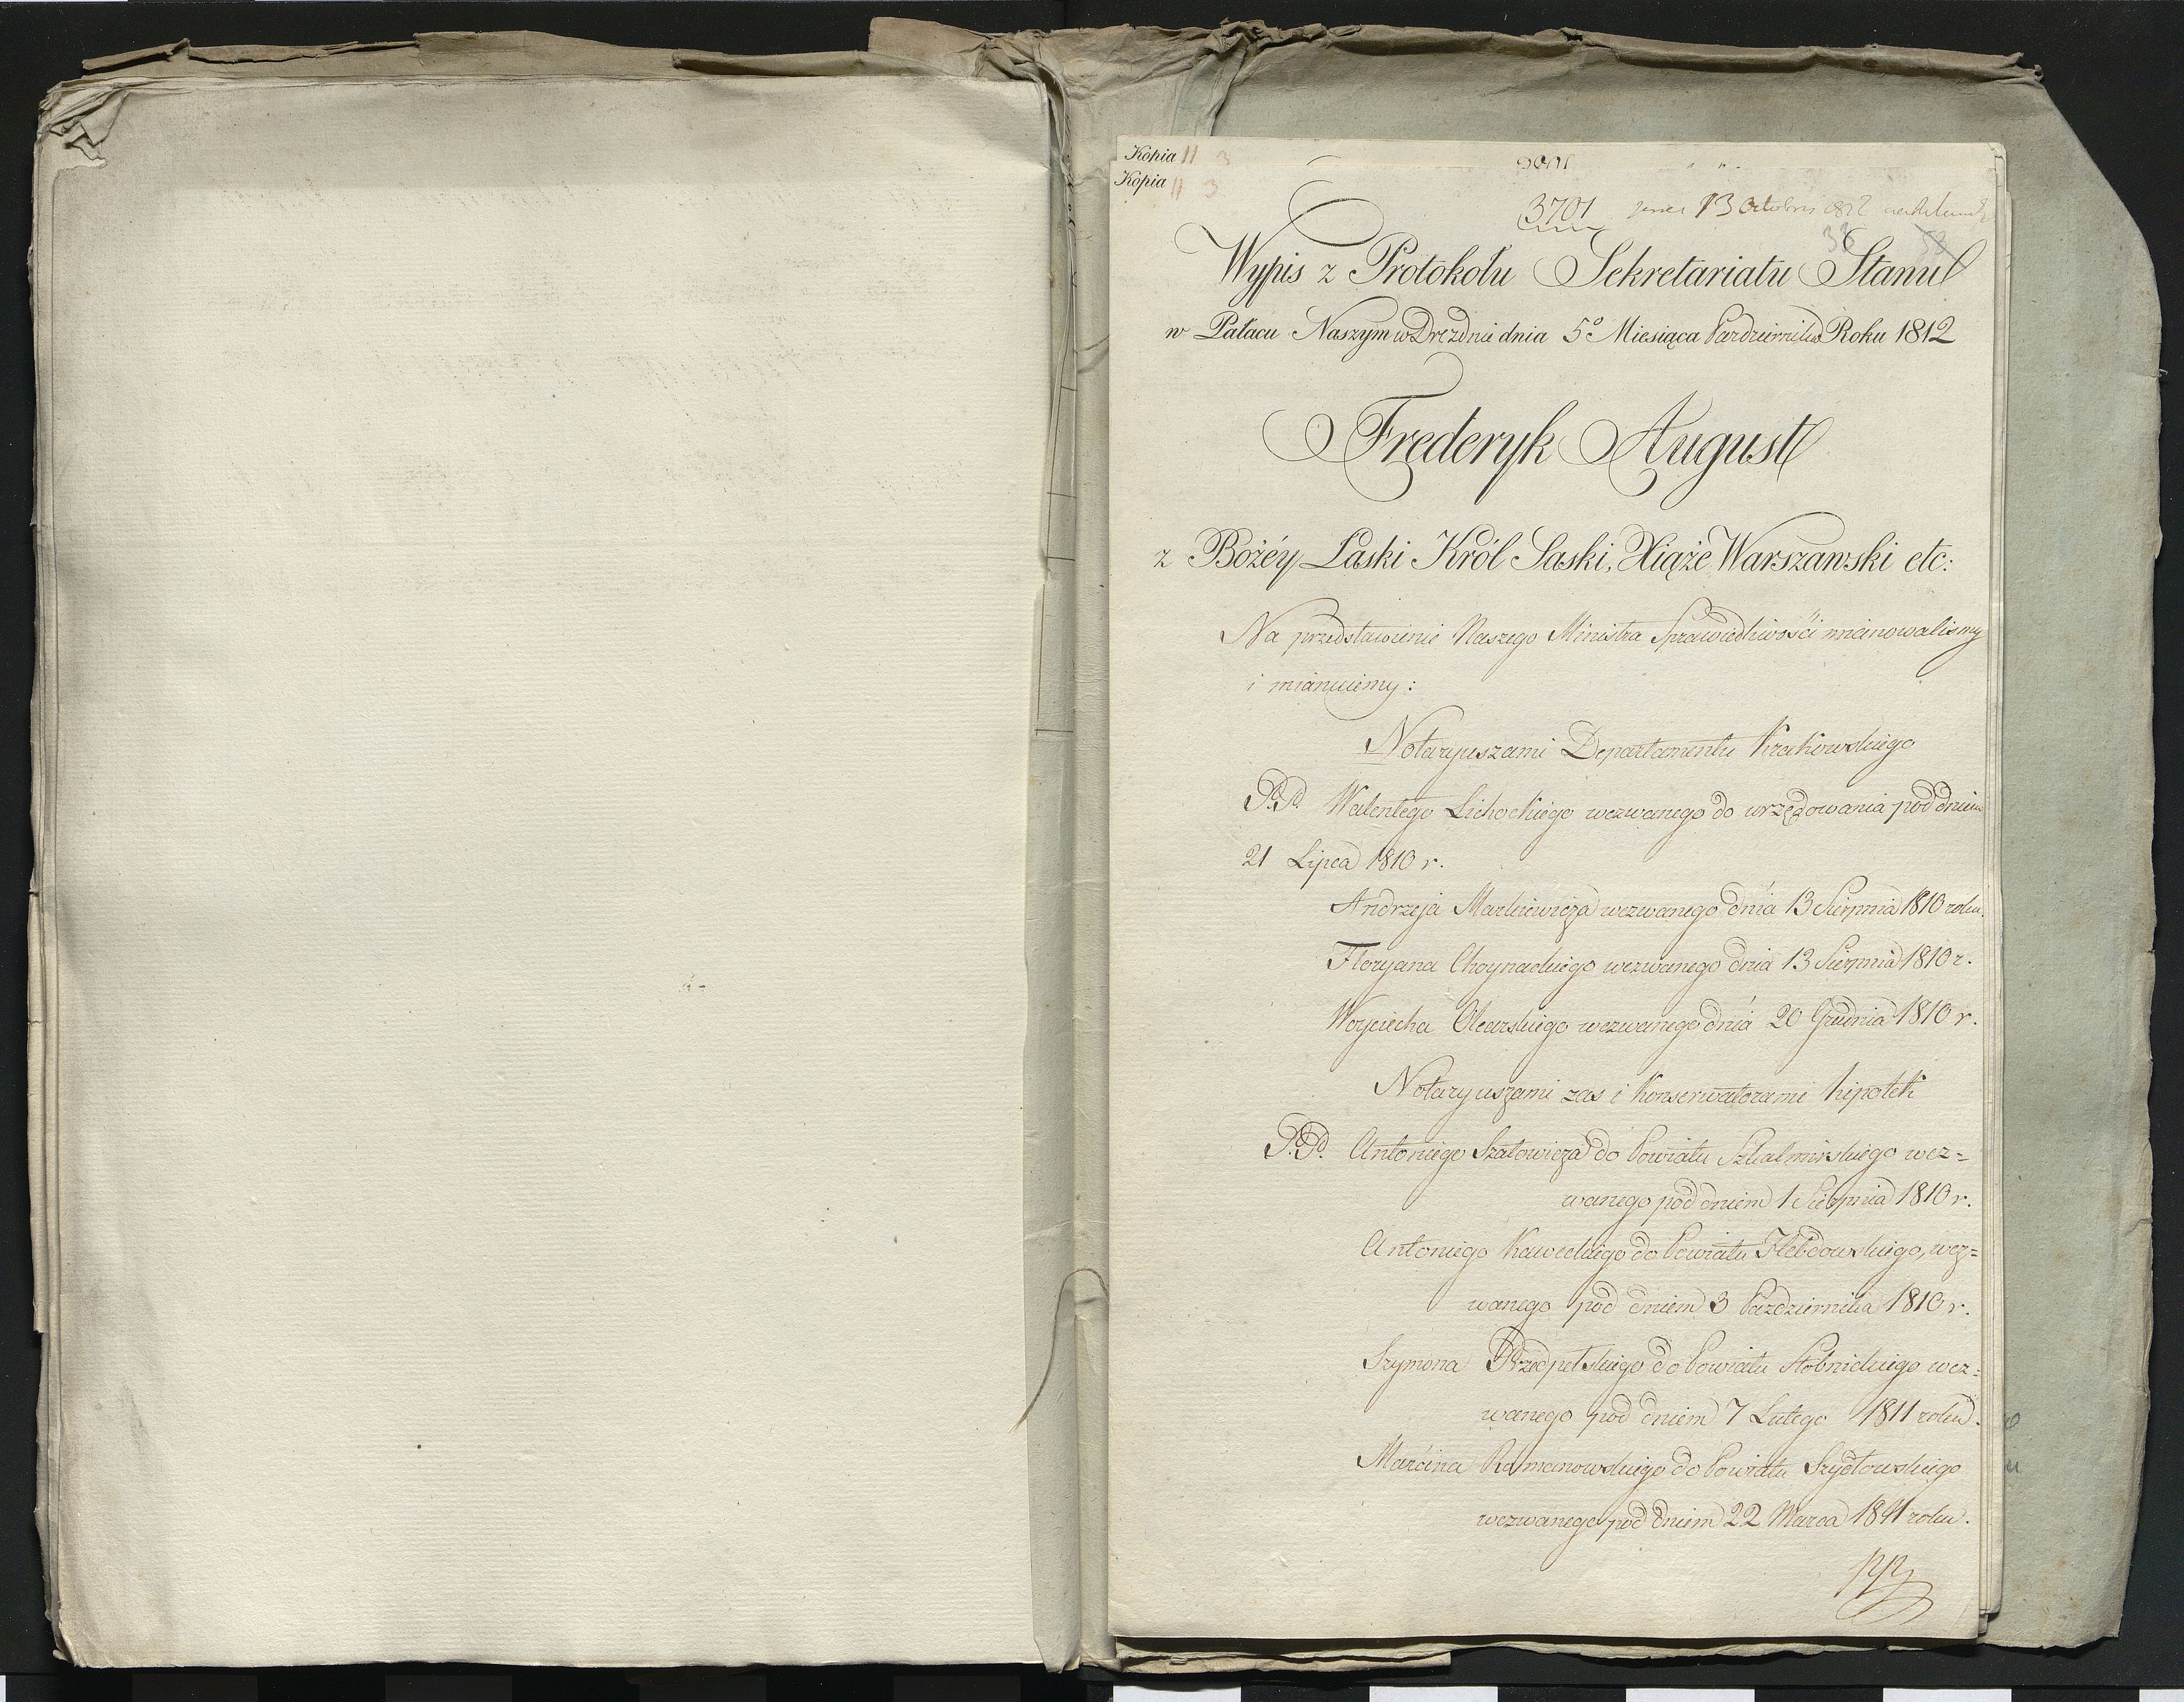 Kopia 11 3
Kopia 11 3
3701 13 Octobris 1812
38 58
Wypis z Protokołu Sekretariatu Stanu
w Pałacu Naszym w Dreznie dnia 5º Miesiąca Pazdziernika Roku 1812
Frederyk August
z Bożéy Łaski Król Saski, Xiąże Warszawski etc:
Na przedstawienie Naszego Ministra Sprawiedliwości mianowalismy
i mianuiemy:
Notaryuszami Departamentu Krakowskiego
PP. Walentego Lichockiego wezwanego do urzędowania pod dniem
21 Lipca 1810 r.
Andrzeja Markiewicza wezwanego dnia 13 Sierpnia 1810 roku.
Floryana Choynackiego wezwanego dnia 13 Sierpnia 1810 r.
Woyciecha Olearskiego wezwanego dnia 20 Grudnia 1810 r.
Notaryuszami zas i Konserwatorami hipotek
PP. Antoniego Szatowicza do Powiatu Szkalmirskiego wez=
wanego pod dniem 1 Sierpnia 1810 r.
Antoniego Kaweckiego do Powiatu Hebdowskiego, wez=
wanego pod dniem 3 Pazdziernika 1810 r.
Szymona Przedpełskiego do Powiatu Stobnickiego wez=
wanego pod dniem 7 Lutego 1811 roku.
Marcina Romanowskiego do Powiatu Szydłowskiego
wezwanego pod dniem 22 Marca 1811 roku.